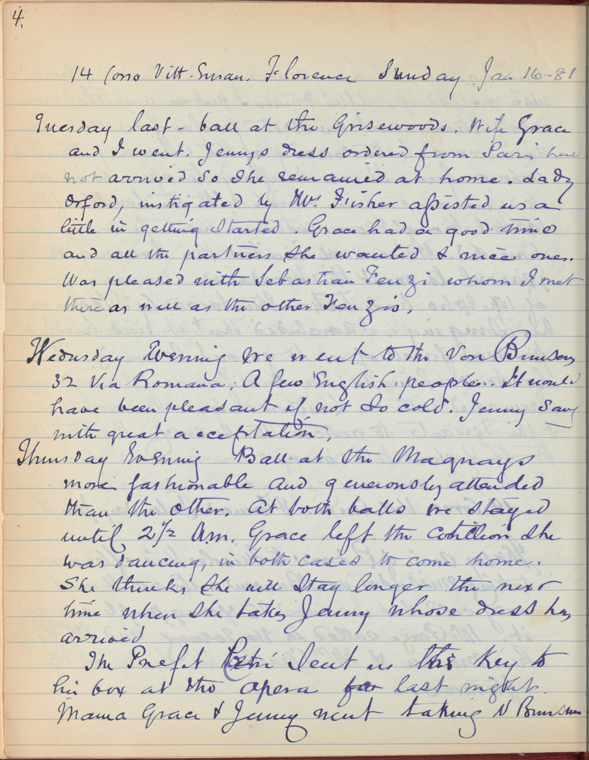 4.
14 Corso Vitt. Eman. Florence Sunday Jan 16-81
Tuesday last - ball at the Grisewoods. Wife Grace
and I went. Jennys dress ordered from Paris had
not arrived so she remained at home. Lady
Orford, instigated by Mrs Fisher assisted us a
little in getting started. Grace had a good time
and all the partners she wanted & nice ones.
Was pleased with Sebastian Fenzi whom I met
there as well as the other Fenzis.
Wedusday Evening we went to the Von Bunsens
32 Via Romana. A few English people. It would
have been pleasant if not so cold. Jenny Sang
with great acceptation.
Thursday Evening Ball at the Maquays
more fashionable and generously attended
than the other. At both balls we stayed
until 2 1/2 Am. Grace left the cotillion she
was dancing, in both cases to come home.
She thinks she will stay longer the next
time when she takes Jenny whose dress has
arrived
The Prefet sent us the key to
his box at the opera for last night.
Mama Grace & Jenny went taking V Bunsens